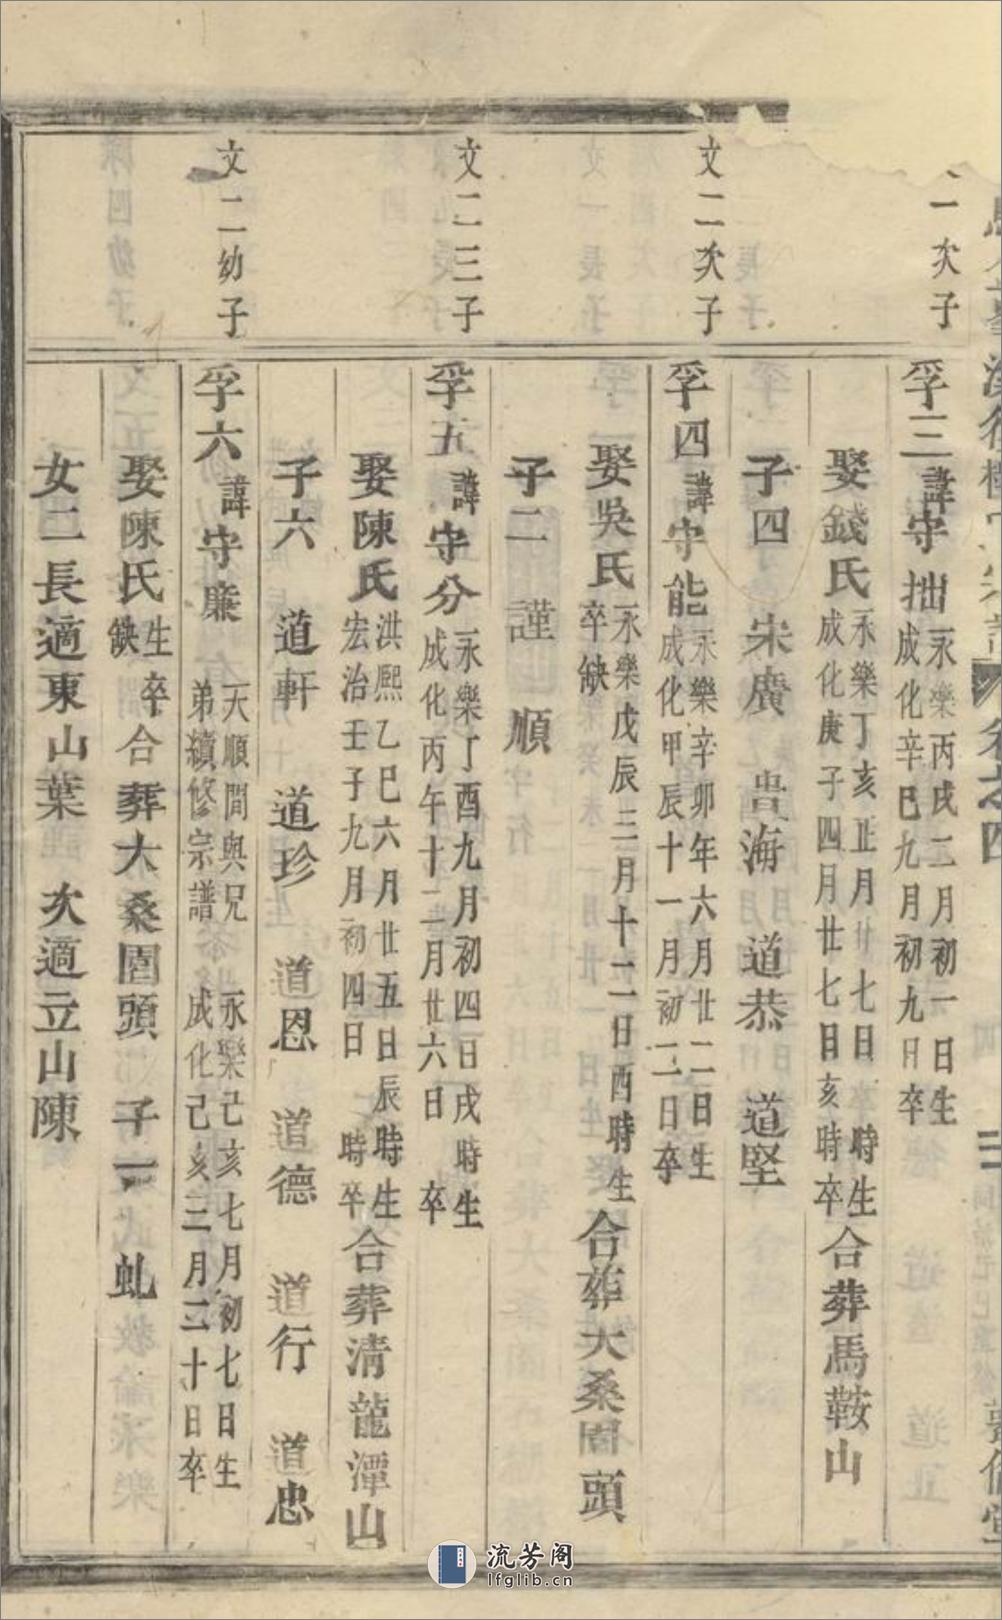 卷之四
一次子
孚三諱守拙永樂丙戌二月初一日生成化辛巳九月初九日卒
娶錢氏永樂丁亥正月廿七日時生成化庚子四月廿七日亥時卒合葬馬鞍山
子四 宋廣 貴海 道恭 道堅
文二次子
孚四諱守能永樂辛卯年六月廿二日生成化甲辰十一月初二日卒
娶吳氏永樂戊辰三月十二日酉時生卒缺合葬大桑園頭
子二 謹 順
文二三子
孚五諱守分永樂丁酉九月初四日戌時生成化丙午十二月廿六日 卒
娶陳氏洪熈乙巳六月廿五日辰時生宏治壬子九月初四日 時卒合葬清龍潭山
子六 道軒 道珍 道恩 道德 道行 道忠
文二幼子
孚六諱守廉天順間與兄弟續修宗譜永樂己亥七月初七日生成化己亥三月二十日卒
娶陳氏生卒缺合葬大桑園頭 子一 虬
女二長適東山葉 次適立山陳
流芳阁
lfglib.cn